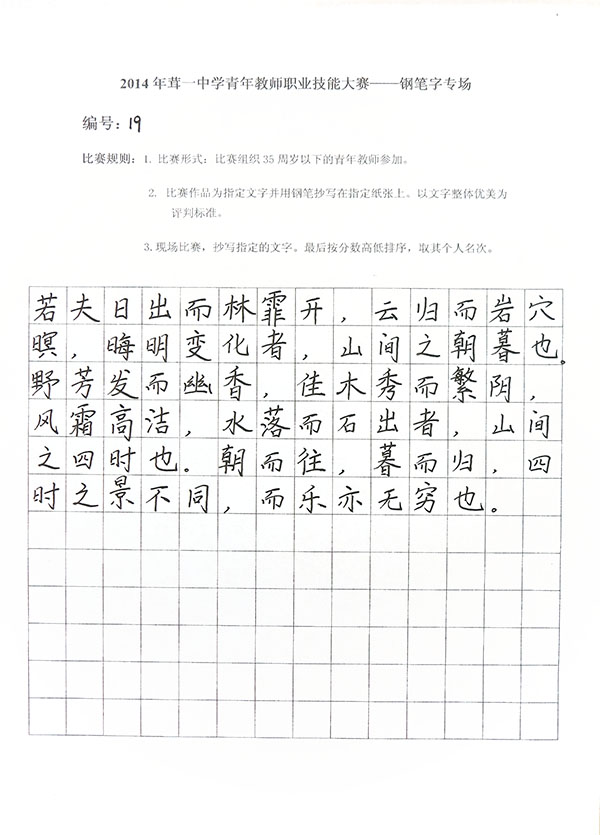 2014 年茸一中学青年教师职业技能大赛——钢笔字专场
编号：19
比赛规则：1. 比赛形式：比赛组织 35 周岁以下的青年教师参加。
2. 比赛作品为指定文字并用钢笔抄写在指定纸张上。以文字整体优美为
评判标准。
3.现场比赛，抄写指定的文字。最后按分数高低排序，取其个人名次。
若夫日出而林霏开，云归而岩穴
暝，晦明变化者，山间之朝暮也。
野芳发而幽香，佳木秀而繁阴，
风霜高洁，水落而石出者，山间
之四时也。朝而往，暮而归，四
时之景不同，而乐亦无穷也。